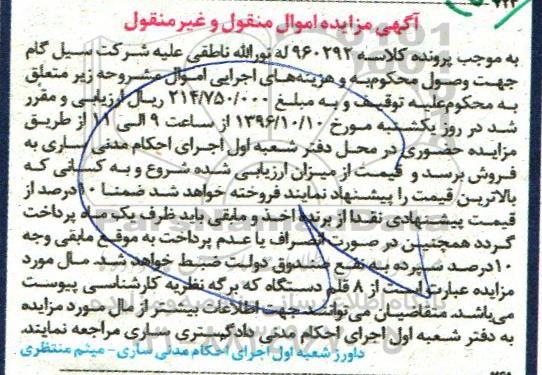 ۷۲۳
آگهی مزایده اموال منقول و غیر منقول
به موجب پرونده کلاسه ۹۶۰۲۹۲ له نورالله ناطقی علیه شرکت سیل گام
جهت وصول محکوم‌به و هزینه‌های اجرایی اموال مشروحه زیر متعلق
به محکوم‌علیه توقیف و به مبلغ ۲۱۴/۷۵۰/۰۰۰ ریال ارزیابی و مقرر
شد در روز یکشنبه مورخ ۱۳۹۶/۱۰/۱۰ از ساعت ۹ الی ۱۱ از طریق
مزایده حضوری در محل دفتر شعبه اول اجرای احکام مدنی ساری به
فروش برسد و قیمت از میزان ارزیابی شده شروع و به کسانی که
بالاترین قیمت را پیشنهاد نمایند فروخته خواهد شد ضمنا ۱۰درصد از
قیمت پیشنهادی نقدا از برنده اخذ و مابقی باید ظرف یک ماه پرداخت
گردد همچنین در صورت انصراف یا عدم پرداخت به موقع مابقی وجه
۱۰درصد سپرده به نفع صندوق دولت ضبط خواهد شد. مال مورد
مزایده عبارت است از ۸ قلم دستگاه که برگه نظریه کارشناسی پیوست
می‌باشد. متقاضیان می‌توانند جهت اطلاعات بیشتر از مال مورد مزایده
به دفتر شعبه اول اجرای احکام مدنی دادگستری ساری مراجعه نمایند.
داورز شعبه اول اجرای احکام مدنی ساری - میثم منتظری